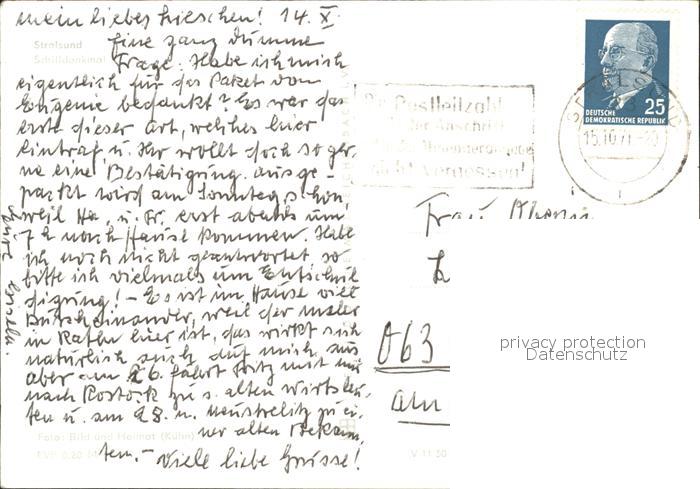 mein liebes Lieschen! 14. X.
Eine ganz dumme
Frage. Habe ich mich
eigentlich für das Paket von
Eugenie bedankt? Es war das
erste dieser Art, welches hier
eintraf u. Ihr wollt doch so ger-
ne eine Bestätigung. ausge-
packt wird am Sonntag schon,
weil Ha. u. Fr. erst abends um
7 h nach Hause kommen. Habe
ich noch nicht geantwortet, so
bitte ich vielmals um Entschul
digung! – Es ist im Hause viel
Durcheinander, weil der maler
in Raten hier ist, das wirkt sich
natürlich auch auf mich aus
aber am 26. fährt Fritz mit mir
nach Rostock zu s. alten Wirtsleu-
ten u. am 28. n. Neustrelitz zu ei-
ner alten Bekann,
ten. – Viele liebe Grüsse!
Gisela.
Stralsund
Schilldenkmal
Foto: Bild und Heimat (Kühn)
EVP 0,20
V 11 50
Postleitzahl
der Anschrift
nicht vergessen!
DEUTSCHE
DEMOKRATISCHE REPUBLIK
25
STRALSUND
15.10.71-20
Frau
063
am
privacy protection
Datenschutz